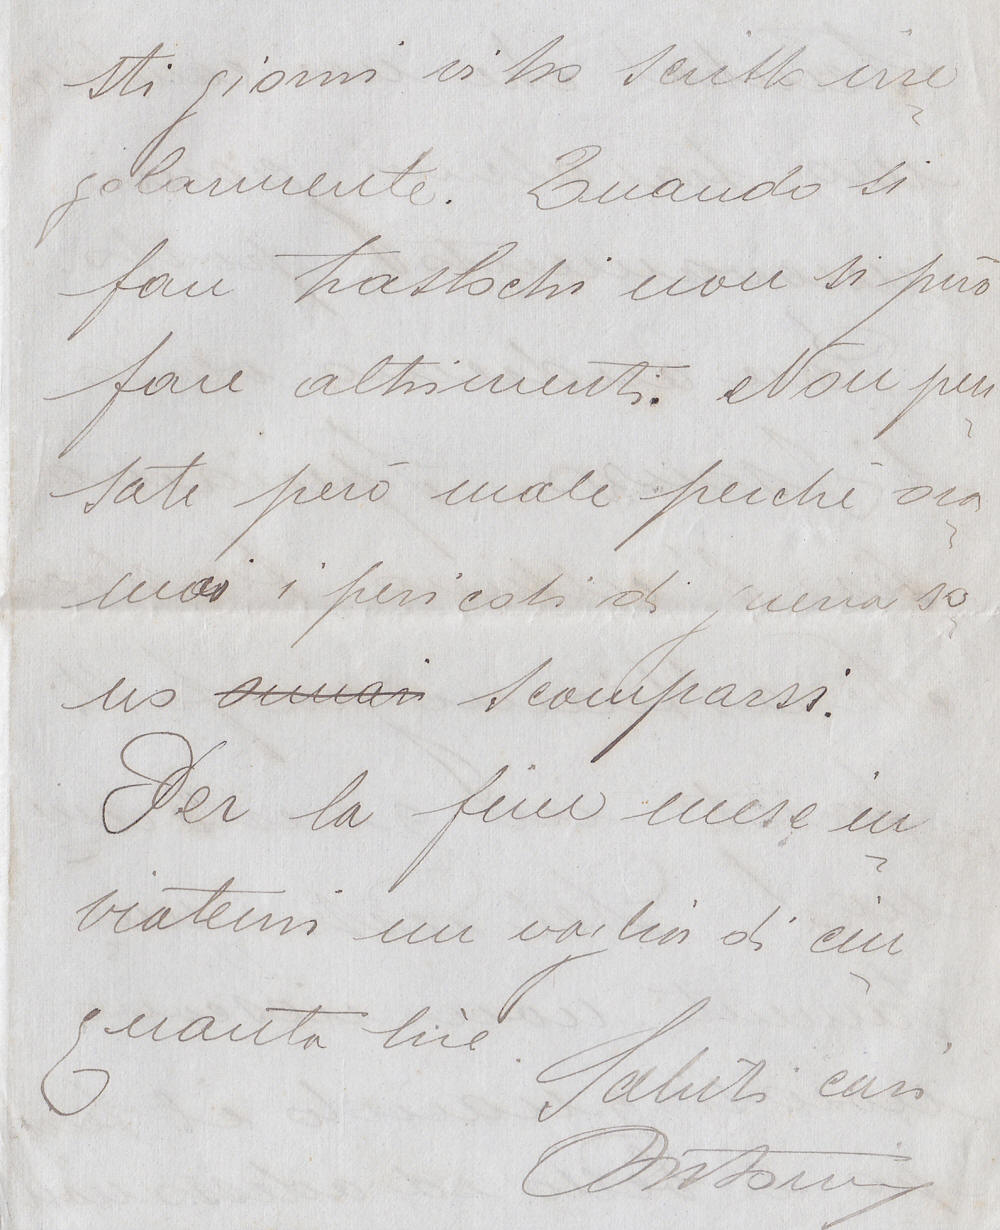 sti giorni vi ho scritto irre
golarmente. Quando si
fan traslochi non si può
fare altrimenti. Non pen
sate però male perchè ora
mai i pericoli di guerra so
no scomparsi.
Per la fine mese in
viatemi un vaglia di cin
quanta lire.
Saluti cari
Antonio